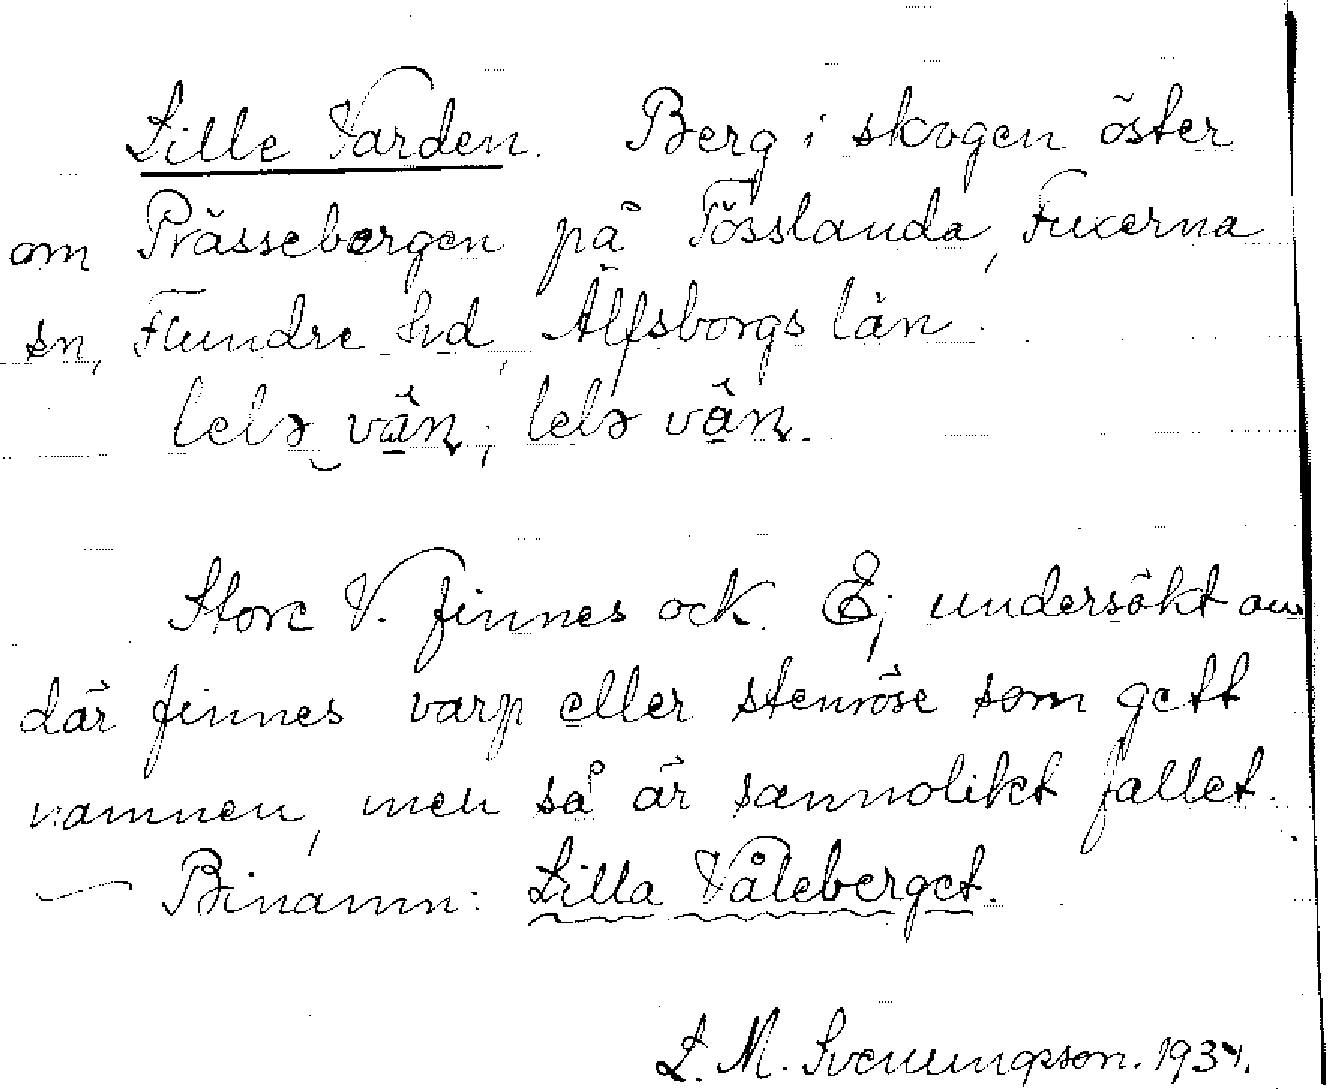 Lille Varden. Berg i skogen öster
om Prässebergen på Tösslanda, Fuxerna
sn, Flundre hd, Älfsborgs län.
Store V. finnes ock. Ej undersökt om
där finnes varp eller stenröse som gett
namnen, men så är sannolikt fallet.
— Binamn: Lilla Våleberget.
L. M. Svenungsson. 1934.